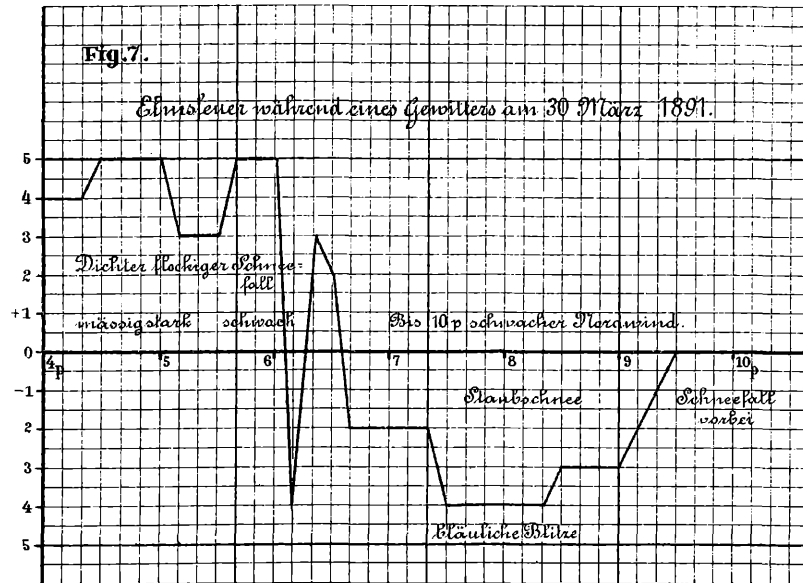 Fig. 7.
Elmsfeuer während eines Gewitters am 30 März 1891.
5
4
3
2
+1
0
-1
2
3
4
5
Dichter flockiger Schnee=
fall
mässig stark schwach
Bis 10 p schwacher Nordwind.
4p 5 6 7 8 9 10p
Staubschnee
Schneefall
vorbei
bläuliche Blitze